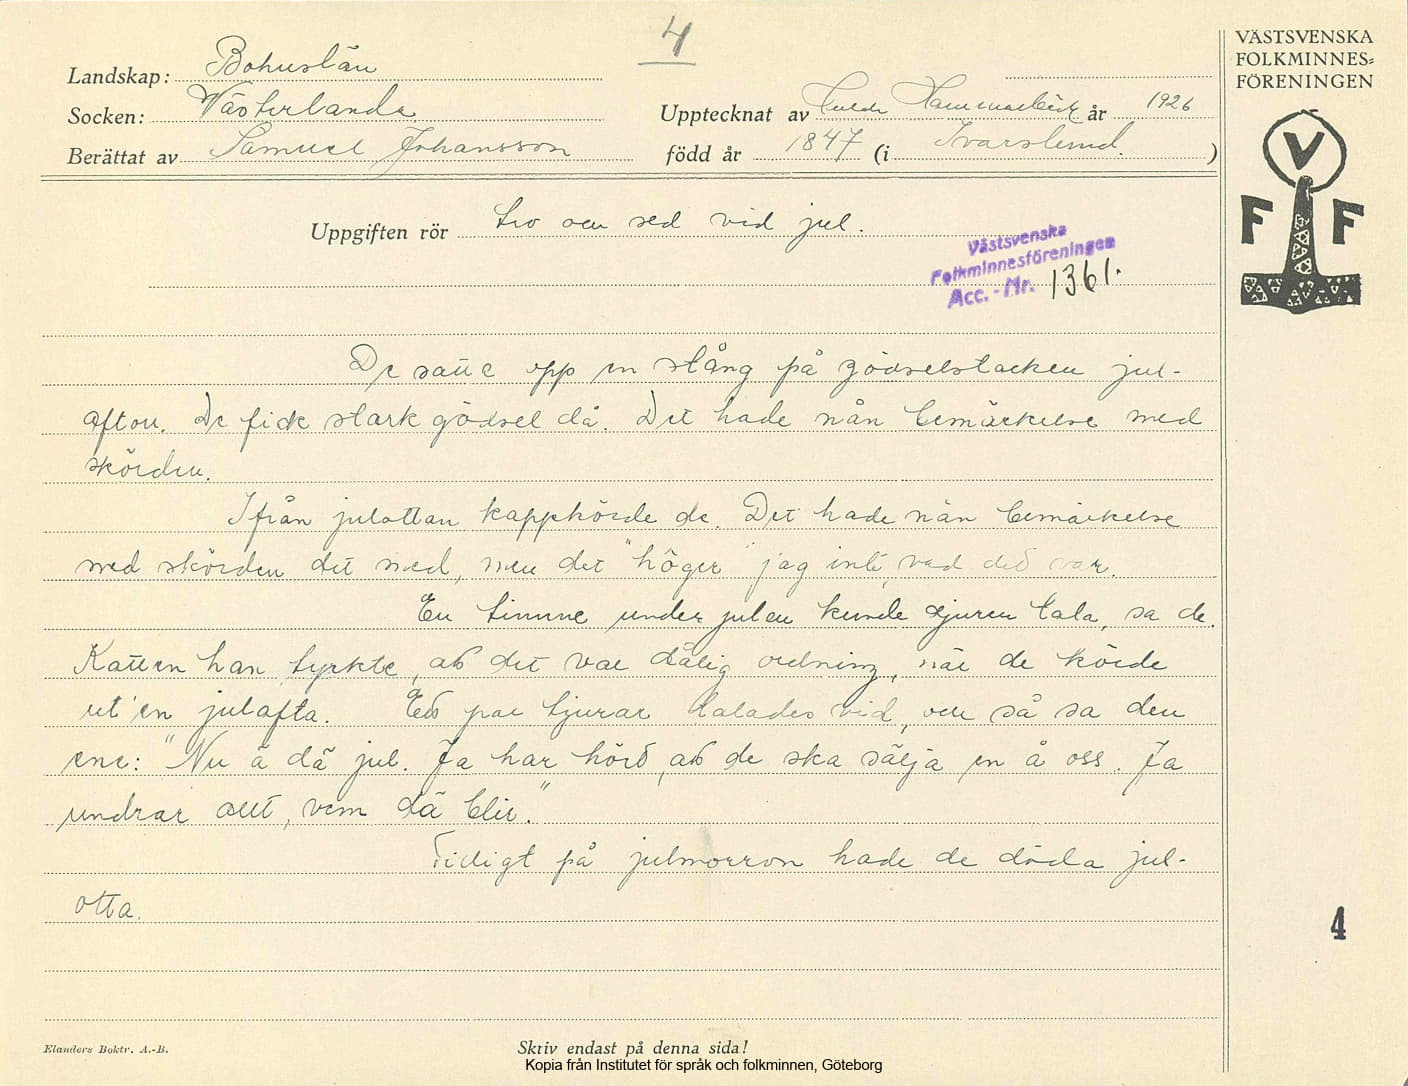 4
Landskap: Bohuslän
Socken: Västerlanda
Upptecknat av Hulda Hammarbäck år 1926
Berättat av Samuel Johansson
född år 1847 (i Ivarslund.)
Uppgiften rör tro och sed vid jul.
Västsvenska
Folkminnesföreningen
Acc. - Nr. 1361.
De satte opp en stång på gödselstacken jul-
afton. De fick stark gödsel då. Det hade nån bemärkelse med
skörden.
Ifrån julottan kappkörde de. Det hade nån bemärkelse
med skörden det med, men det "höger" jag inte, vad det var.
En timme under julen kunde djuren tala, sa de.
Katten han tyckte, att det var dålig ordning, när de körde
ut'en julafta. Ett par tjurar talades vid, och så sa den
ene: "Nu ä dä jul. Ja har hört, att de ska sälja en å oss. Ja
undrar ått, vem dä blir."
Tidigt på julmorron hade de döda jul-
otta.
VÄSTSVENSKA
FOLKMINNES=
FÖRENINGEN
V
F F
4
Elanders Boktr. A.-B.
Skriv endast på denna sida!
Kopia från Institutet för språk och folkminnen, Göteborg